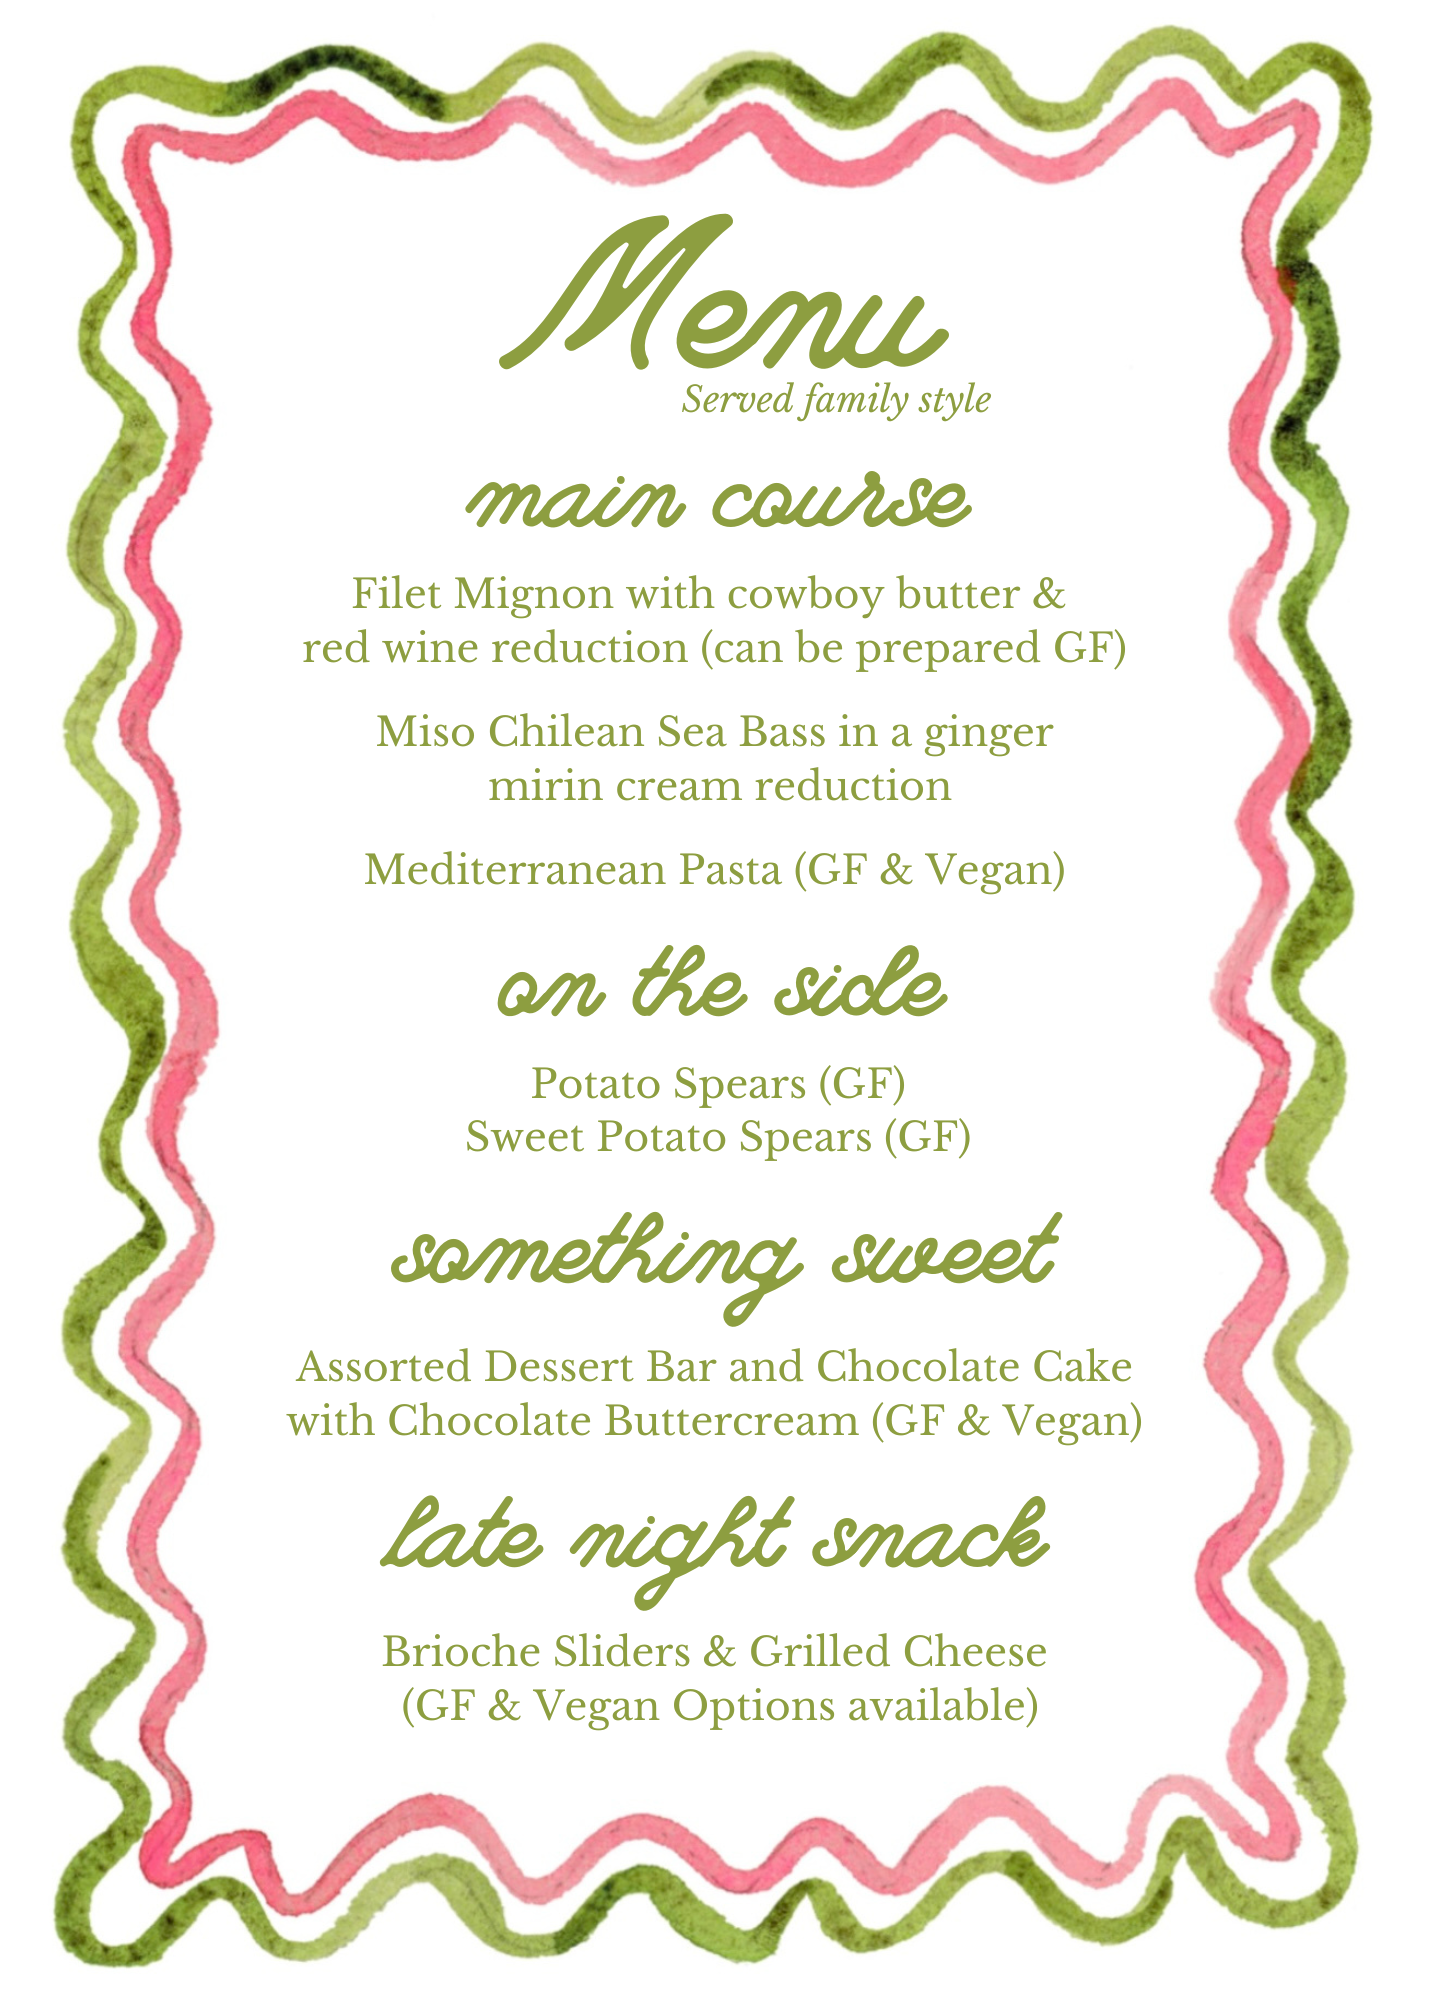 Menu
Served family style
main course
Filet Mignon with cowboy butter &
red wine reduction (can be prepared GF)
Miso Chilean Sea Bass in a ginger
mirin cream reduction
Mediterranean Pasta (GF & Vegan)
on the side
Potato Spears (GF)
Sweet Potato Spears (GF)
something sweet
Assorted Dessert Bar and Chocolate Cake
with Chocolate Buttercream (GF & Vegan)
late night snack
Brioche Sliders & Grilled Cheese
(GF & Vegan Options available)